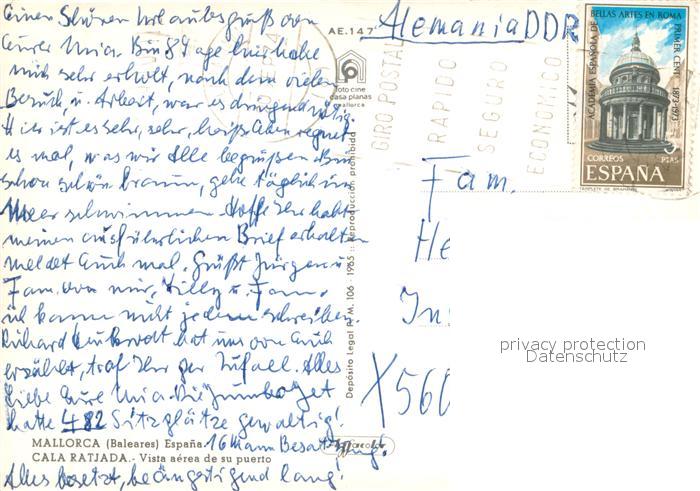 Einen Schönen Urlaubsgruß von
Eurer Mia. Bin 8 Tage hier habe
mich sehr erholt, nach dem vielen
Besuch, u. Arbeit, war es dringend nötig.
Hier ist es sehr, sehr, heiß. Eben regnet
es mal, was wir Alle begrüßen. Bin
schon schön braun, gehe täglich im
Meer schwimmen. Hoffe Ihr habt
meinen ausführlichen Brief erhalten
meldet Euch mal. Grüßt Jürgen u.
Fam. von mir, Willy u. Fam.
ich kann nicht jedem schreiben.
Richard hat uns von Euch
erzählt, traf Ihr per Zufall. Alles
Liebe Eure Mia. Die Jumbojet
hatte 482 Sitzplätze gewaltig!
16 Mann Besatzung!
Alles besetzt, beängstigend lang!
MALLORCA (Baleares) España
CALA RATJADA.- Vista aérea de su puerto
AE.147
foto cine
casa planas
mallorca
Depósito Legal P.M. 106 - 1965 :: Reproducción prohibida
Alemania DDR
GIRO POSTAL
RAPIDO
SEGURO
ECONOMICO
ACADEMIA ESPAÑOLA DE
BELLAS ARTES EN ROMA
PRIMER CENT. 1873-1973
3
PTAS
CORREOS
ESPAÑA
Fam.
He
In
X560
privacy protection
Datenschutz